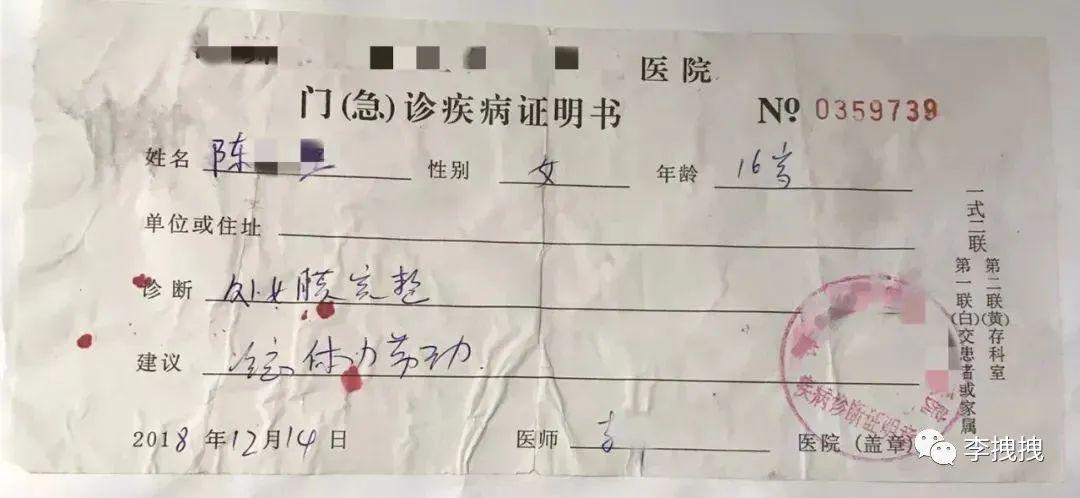 医院
门(急)诊疾病证明书
№ 0359739
姓名 陈 性别 女 年龄 16岁
单位或住址
诊断 处女膜完整
建议 体力劳动.
2018 年12月14日 医师 医院(盖章)
疾病诊断证明章
一式二联
第一联(白)交患者或家属
第二联(黄)存科室
李拽拽